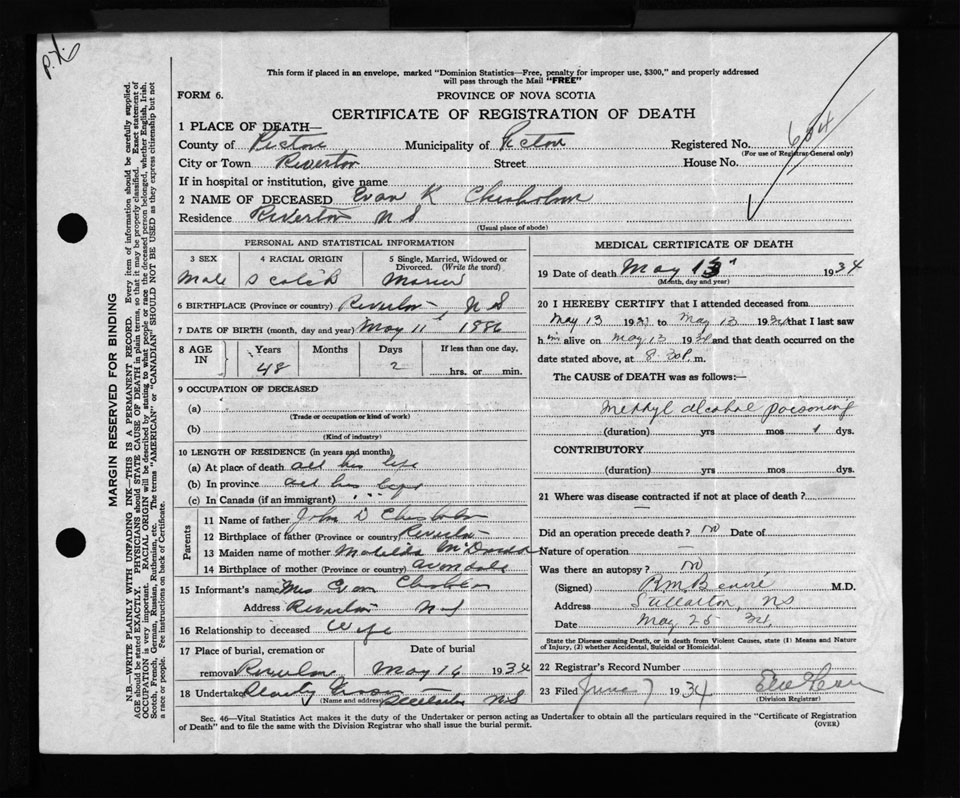 P.X.6
This form if placed in an envelope, marked "Dominion Statistics—Free, penalty for improper use, $300," and properly addressed
will pass through the Mail "FREE"
FORM 6. PROVINCE OF NOVA SCOTIA
CERTIFICATE OF REGISTRATION OF DEATH
1 PLACE OF DEATH—
County of Pictou Municipality of Pictou Registered No. 604
(For use of Registrar General only)
City or Town Riverton Street House No.
If in hospital or institution, give name
2 NAME OF DECEASED Evan K Chisholm
Residence Riverton N S
(Usual place of abode)
PERSONAL AND STATISTICAL INFORMATION
3 SEX 4 RACIAL ORIGIN 5 Single, Married, Widowed or Divorced. (Write the word)
Male Scotch
6 BIRTHPLACE (Province or country) Riverton N S
7 DATE OF BIRTH (month, day and year) May 11 1886
8 AGE IN Years Months Days If less than one day,
48 2 hrs. or min.
9 OCCUPATION OF DECEASED
(a)
(Trade or occupation or kind of work)
(b)
(Kind of industry)
10 LENGTH OF RESIDENCE (in years and months)
(a) At place of death all his life
(b) In province all his life
(c) In Canada (if an immigrant)
Parents
11 Name of father John D Chisholm
12 Birthplace of father (Province or country) Riverton
13 Maiden name of mother Matilda McDonald
14 Birthplace of mother (Province or country) Avondale
15 Informant's name Mrs Evan Chisholm
Address Riverton N S
16 Relationship to deceased Wife
17 Place of burial, cremation or removal Date of burial
Riverton May 16 1934
18 Undertaker
(Name and address) N S
MEDICAL CERTIFICATE OF DEATH
19 Date of death May 13 1934
(Month, day and year)
20 I HEREBY CERTIFY that I attended deceased from
May 13 1934 to May 13 1934 that I last saw
h im alive on May 13 1934 and that death occurred on the
date stated above, at 8.30 P. m.
The CAUSE of DEATH was as follows:—
Methyl alcohol poisoning
(duration) yrs mos 1 dys.
CONTRIBUTORY
(duration) yrs mos dys.
21 Where was disease contracted if not at place of death?
—
Did an operation precede death? no Date of
Nature of operation —
Was there an autopsy? no
(Signed) M.D.
Address Stellarton, NS
Date May 25 34
State the Disease causing Death, or in death from Violent Causes, state (1) Means and Nature
of Injury, (2) whether Accidental, Suicidal or Homicidal.
22 Registrar's Record Number
23 Filed June 7 1934
(Division Registrar)
Sec. 46—Vital Statistics Act makes it the duty of the Undertaker or person acting as Undertaker to obtain all the particulars required in the "Certificate of Registration
of Death" and to file the same with the Division Registrar who shall issue the burial permit. (OVER)
MARGIN RESERVED FOR BINDING
N.B.—WRITE PLAINLY WITH UNFADING INK—THIS IS A PERMANENT RECORD. Every item of information should be carefully supplied.
AGE should be stated EXACTLY. PHYSICIANS should STATE CAUSE OF DEATH in plain terms, so that it may be properly classified. Exact statement of
OCCUPATION is very important. RACIAL ORIGIN will be described by stating to what people or race the deceased person belonged, whether English, Irish,
Scotch, French, German, Russian, Ruthenian, etc. The terms "AMERICAN" or "CANADIAN" SHOULD NOT BE USED as they express citizenship but not
a race or people. See instructions on back of Certificate.